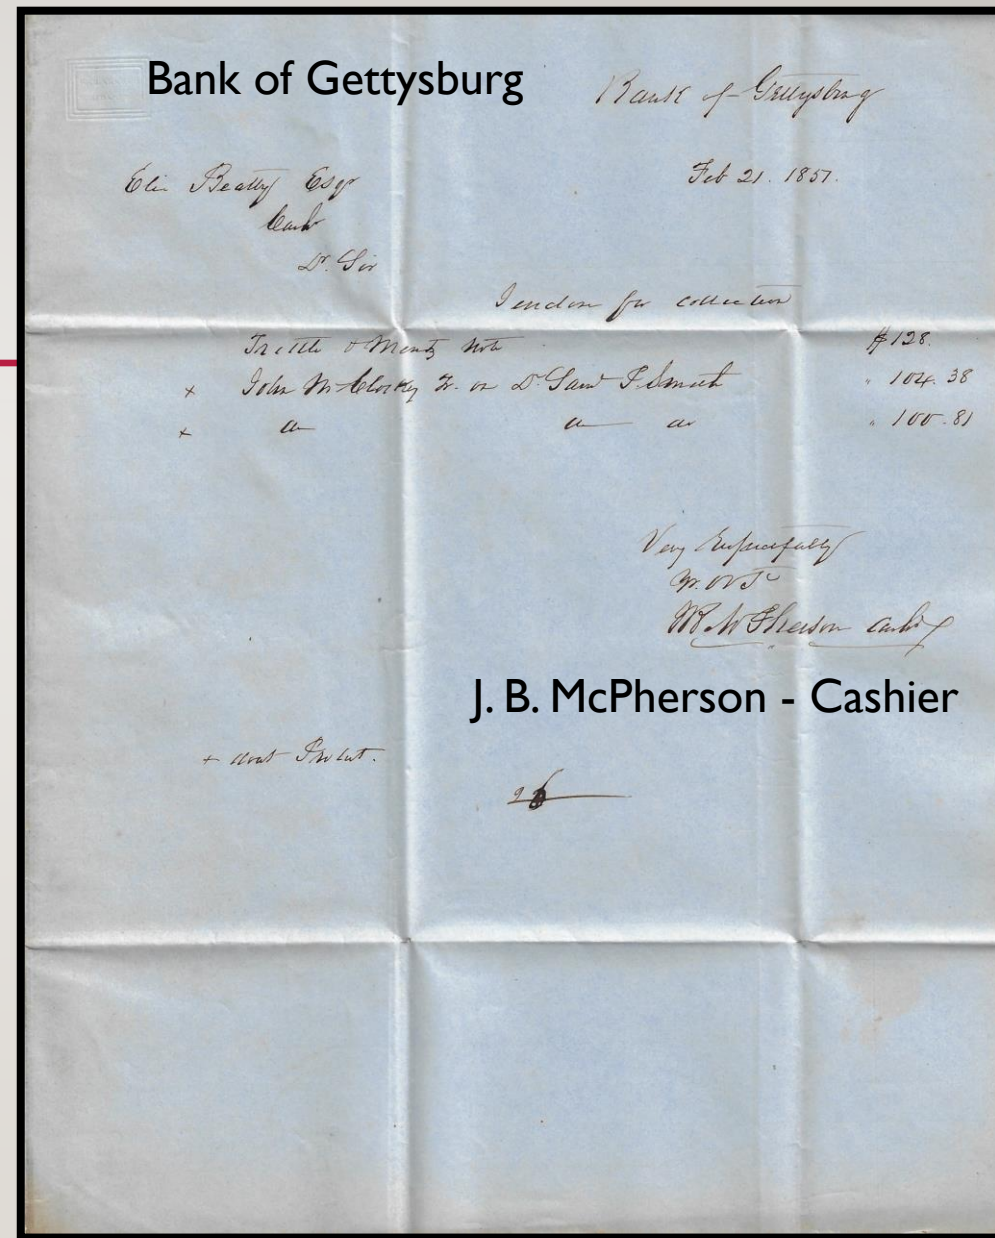 Bank of Gettysburg
Bank of Gettysburg
Feb 21. 1857.
Eli Beatty Esqr
Cash
Dr. Sir
I enclose for collection
note $128.
x John McClosky Dr. Saml Smith " 104.38
x do do do " 100.81
Very Respectfully
McPherson Cashr
J. B. McPherson - Cashier
+ dont Protest.